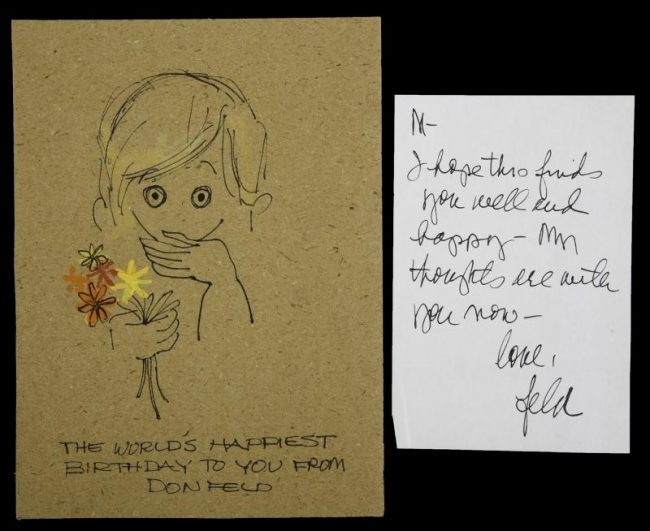 THE WORLD'S HAPPIEST
BIRTHDAY TO YOU FROM
DONFELD
M-
I hope this finds
you well and
happy - My
thoughts are with
you now -
love,
feld